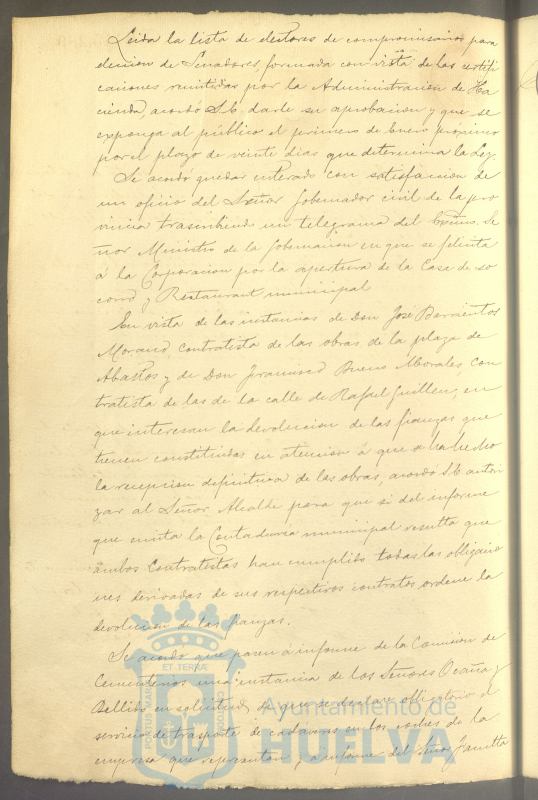 Leida la lista de electores de compromisarios para
eleccion de Senadores formada con vista de las certifi
caciones remitidas por la Administracion de Ha
cienda, acordó S.E. darle su aprobacion y que se
exponga al público el primero de Enero próximo
por el plazo de veinte dias que determina la Ley.
Se acordó quedar enterado con satisfaccion de
un oficio del Señor Gobernador civil de la pro
vincia trascribiendo un telegrama del Excmo. Se
ñor Ministro de la Gobernacion en que se felicita
á la Corporacion por la apertura de la Casa de so
corro y Restaurant municipal
En vista de las instancias de Don José Barrientos
Morano, contratista de las obras de la plaza de
Abastos y de Don Francisco Bueno Morales, con
tratista de las de la calle de Rafael Guillen, en
que interesan la devolucion de las fianzas que
tienen constituidas en atencion á que se ha hecho
la recepcion definitiva de las obras, acordó S.E. autori
zar al Señor Alcalde para que si del informe
que emita la Contaduria municipal resulta que
ambos Contratistas han cumplido todas las obligacio
nes derivadas de sus respectivos contratos, ordene la
devolucion de las fianzas.
Se acordó que pasen á informe de la Comision de
Cementerios una instancia de los Señores Ocaña y
Bellido en solicitud de que se declare obligatorio el
servicio de trasporte de cadáveres en los coches de la
empresa que representan y a informe del Señor
PORTUS MARIS
ET TERRÆ
CUSTODIA
Ayuntamiento de
HUELVA